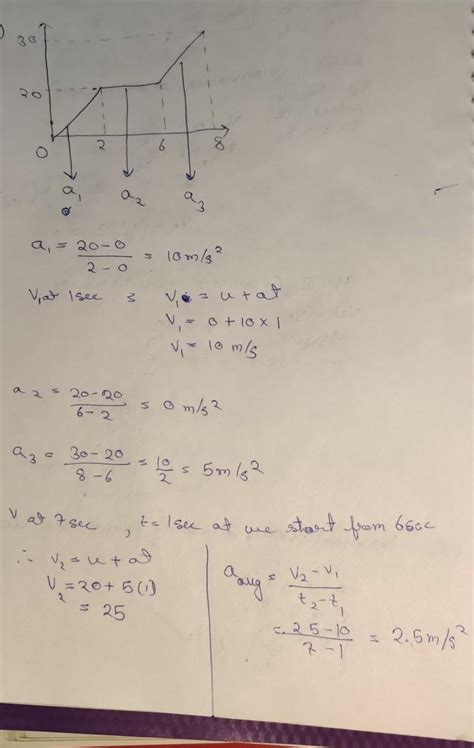 30
20
0 2 6 8
a₁ a₂ a₃
a₁ = 20-0 / 2-0 = 10 m/s²
V₁ at 1sec ⇒ V₁ = u + at
V₁ = 0 + 10 × 1
V₁ = 10 m/s
a₂ = 20-20 / 6-2 = 0 m/s²
a₃ = 30-20 / 8-6 = 10/2 = 5 m/s²
V at 7sec , t = 1sec at we start from 6sec
∴ V₂ = u + at
V₂ = 20 + 5(1)
= 25
a avg = V₂ - V₁ / t₂ - t₁
= 25-10 / 7-1 = 2.5 m/s²